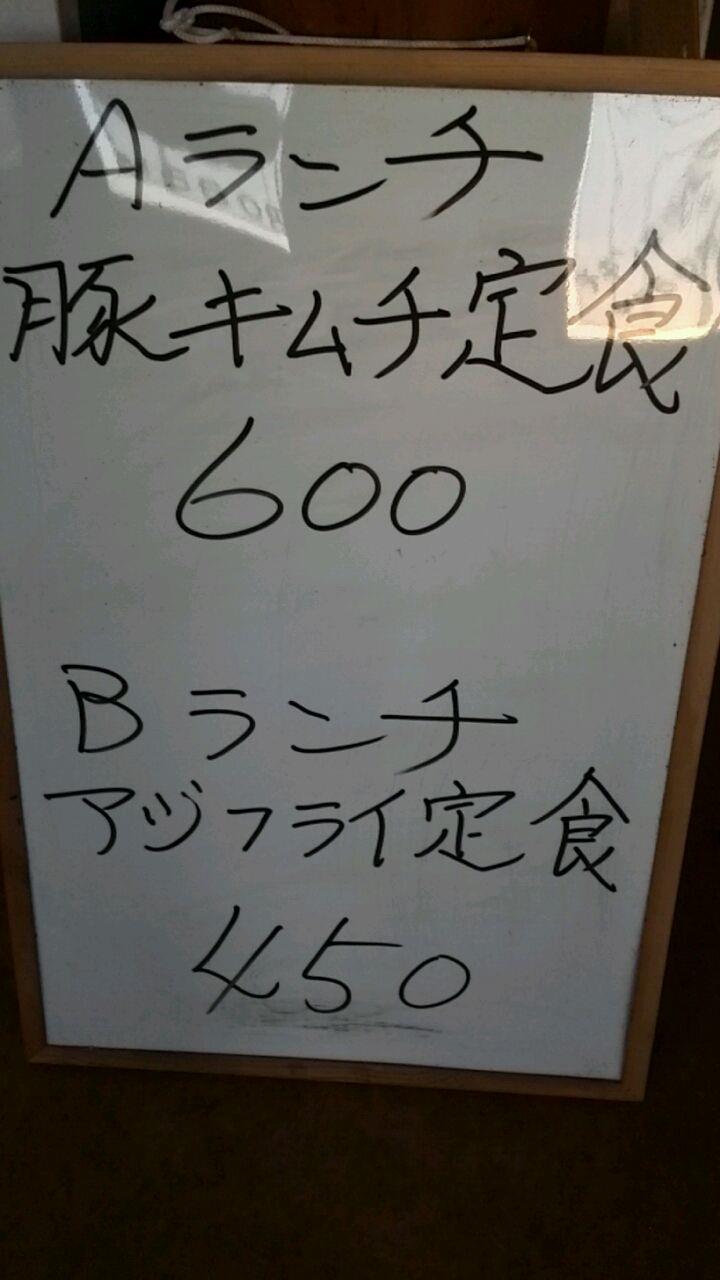 Aランチ
豚キムチ定食
600
Bランチ
アジフライ定食
450